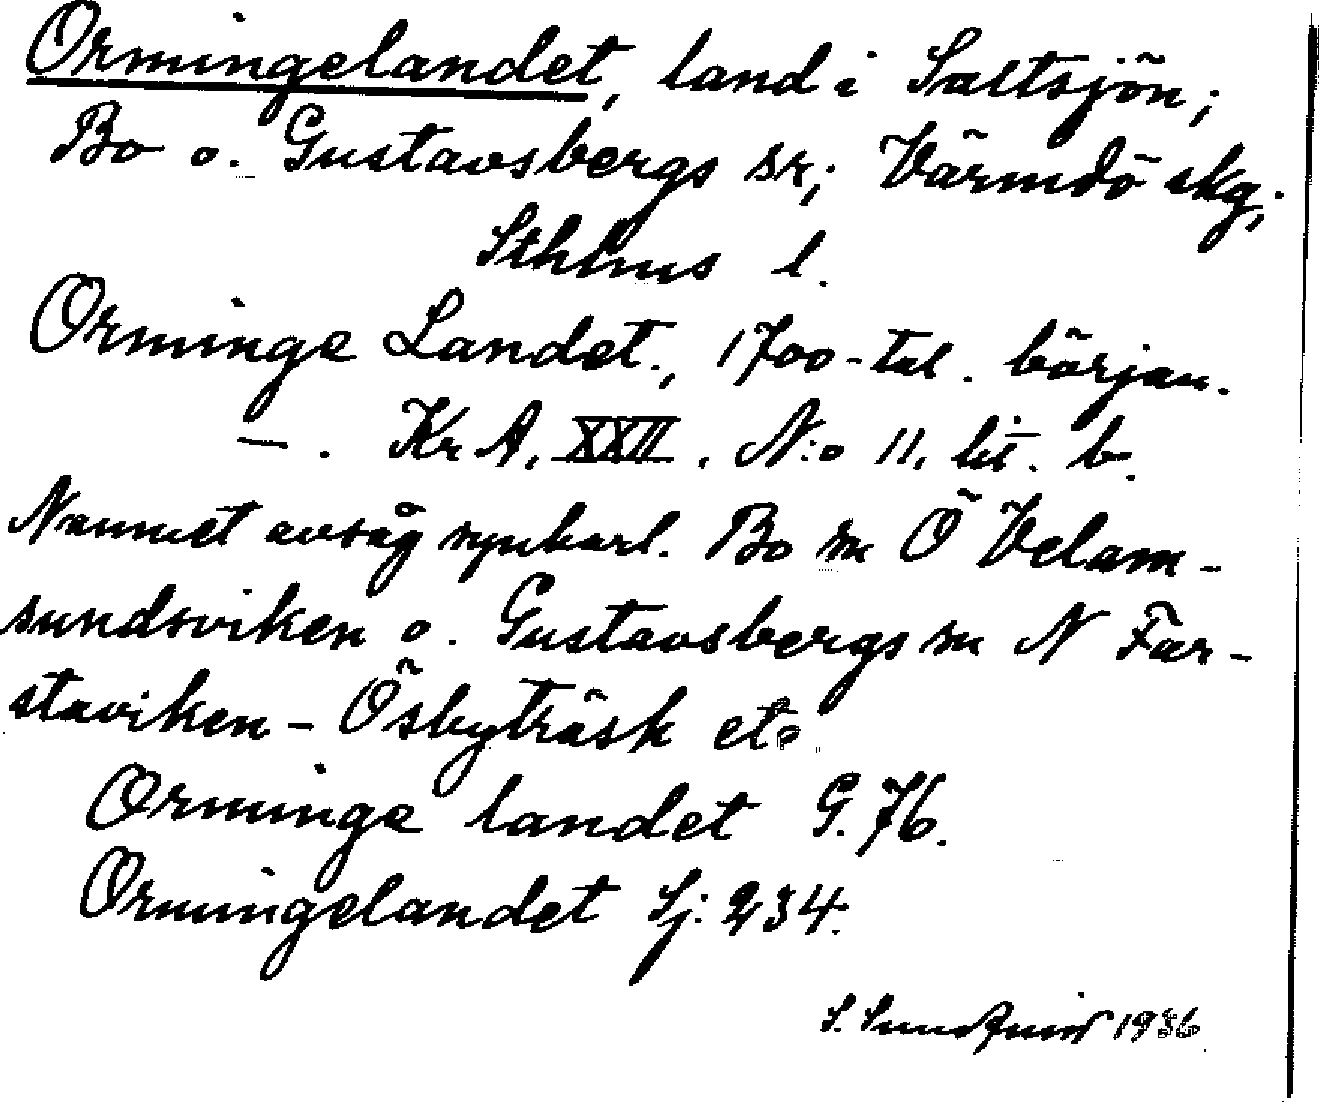 Ormingelandet, land i Saltsjön;
Bo o. Gustavsbergs sr; Värmdö skg;
Sthlms l.
Orminge Landet., 1700-tal. början.
—. Kr A, XXII. N:o 11, lit. b.
Namnet avsåg synbarl. Bo sn Ö Velam-
sundsviken o. Gustavsbergs sn N Far-
staviken - Ösbyträsk etc
Orminge landet G. 76.
Ormingelandet Sj: 234.
S. Sundquist 1936